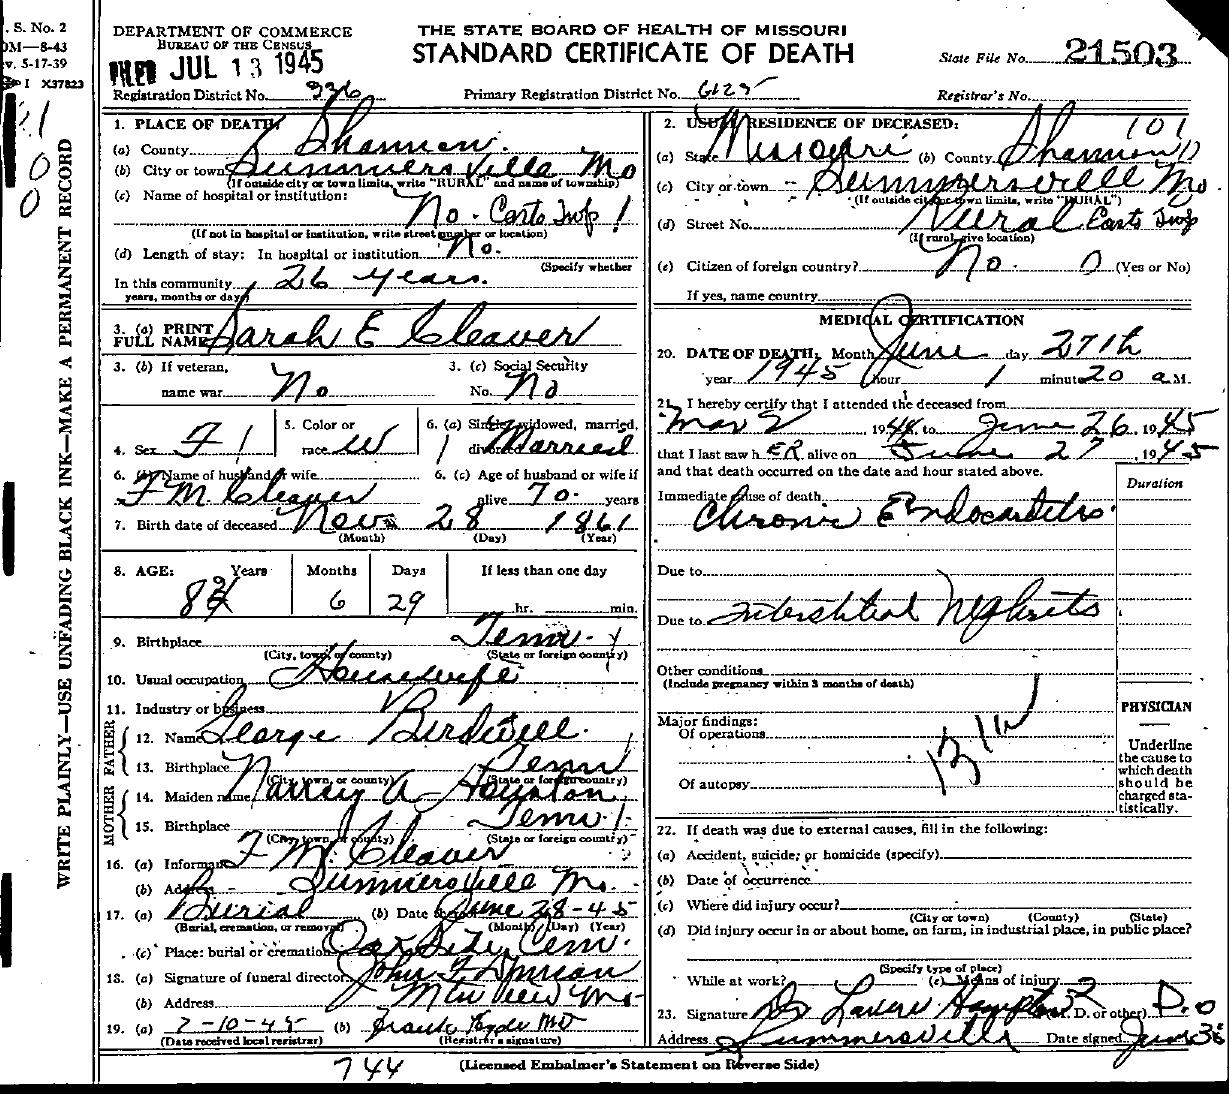 . S. No. 2
OM—8-43
v. 5-17-39
I X37823
WRITE PLAINLY—USE UNFADING BLACK INK—MAKE A PERMANENT RECORD
DEPARTMENT OF COMMERCE
BUREAU OF THE CENSUS
FILED JUL 13 1945
THE STATE BOARD OF HEALTH OF MISSOURI
STANDARD CERTIFICATE OF DEATH
State File No. 21503
Registration District No. 336
Primary Registration District No. 6125
Registrar's No.
1. PLACE OF DEATH:
(a) County Shannon
(b) City or town Summersville Mo
(If outside city or town limits, write "RURAL" and name of township)
(c) Name of hospital or institution:
No. Carts Twp 1
(If not in hospital or institution, write street number or location)
(d) Length of stay: In hospital or institution No.
(Specify whether
In this community 26 years.
years, months or days)
3. (a) PRINT FULL NAME Sarah E Cleaver
3. (b) If veteran, name war No
3. (c) Social Security No. No
4. Sex F 1
5. Color or race W
6. (a) Single, widowed, married, divorced Married
6. (b) Name of husband or wife F M Cleaver
6. (c) Age of husband or wife if alive 70 years
7. Birth date of deceased Nov 28 1861
(Month) (Day) (Year)
8. AGE: Years Months Days If less than one day
83 6 29 hr. min.
9. Birthplace Tenn
(City, town, or county) (State or foreign country)
10. Usual occupation Housewife
11. Industry or business
FATHER
12. Name George Birdwell
13. Birthplace Tenn
(City, town, or county) (State or foreign country)
MOTHER
14. Maiden name A
15. Birthplace Tenn
(City, town, or county) (State or foreign country)
16. (a) Informant F M. Cleaver
(b) Address Summersville Mo.
17. (a) Burial (b) Date June 28-45
(Burial, cremation, or removal) (Month) (Day) (Year)
(c) Place: burial or cremation Cem.
18. (a) Signature of funeral director John F Duncan
(b) Address Mtn View Mo
19. (a) 7-10-45 (b) Frank Hyde MD
(Date received local registrar) (Registrar's signature)
2. USUAL RESIDENCE OF DECEASED: 101
(a) State Missouri (b) County Shannon
(c) City or town Summersville Mo.
(If outside city or town limits, write "RURAL")
(d) Street No. Rural Carts Twp
(If rural, give location)
(e) Citizen of foreign country? No. 0 (Yes or No)
If yes, name country
MEDICAL CERTIFICATION
20. DATE OF DEATH: Month June day 27th
year 1945 hour 1 minute 20 a M.
21. I hereby certify that I attended the deceased from
Mar 2 1944 to June 26, 1945
that I last saw h ER alive on June 27, 1945
and that death occurred on the date and hour stated above.
Duration
Immediate cause of death
Chronic Endocarditis.
Due to
Due to Interstitial Nephritis
Other conditions
(Include pregnancy within 3 months of death)
Major findings:
Of operations
Of autopsy
PHYSICIAN
Underline the cause to which death should be charged statistically.
22. If death was due to external causes, fill in the following:
(a) Accident, suicide, or homicide (specify)
(b) Date of occurrence
(c) Where did injury occur?
(City or town) (County) (State)
(d) Did injury occur in or about home, on farm, in industrial place, in public place?
(Specify type of place)
While at work? (e) Means of injury
23. Signature Dr (M. D. or other) D.O
Address Summersville Date signed June 30
744
(Licensed Embalmer's Statement on Reverse Side)